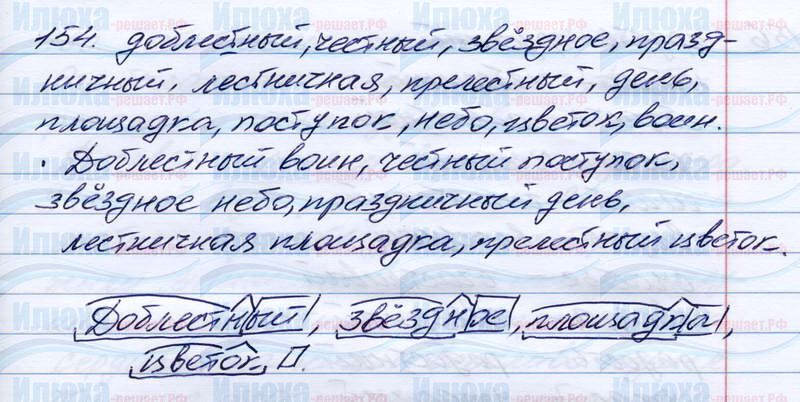 154. доблестный, честный, звёздное, празд-
ничный, лестничная, прелестный, день,
площадка, поступок, небо, цветок, воин.
. Доблестный воин, честный поступок,
звёздное небо, праздничный день,
лестничная площадка, прелестный цветок.
Доблестный, звёздное, площадка,
цветок .